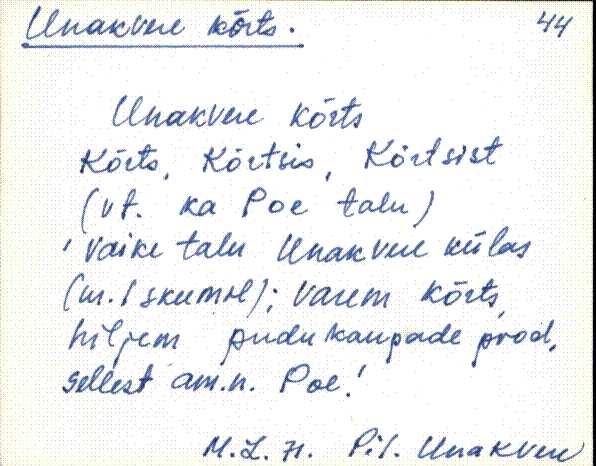 Unakvere kõrts. 44
Unakvere kõrts
Kõrts, Kõrtsis, Kõrtsist
(vt. ka Poe talu)
' väike talu Unakvere külas
varem kõrts,
hiljem pudukaupade pood,
sellest am.n. Poe.'
M.L. 71. P.-J. Unakvere